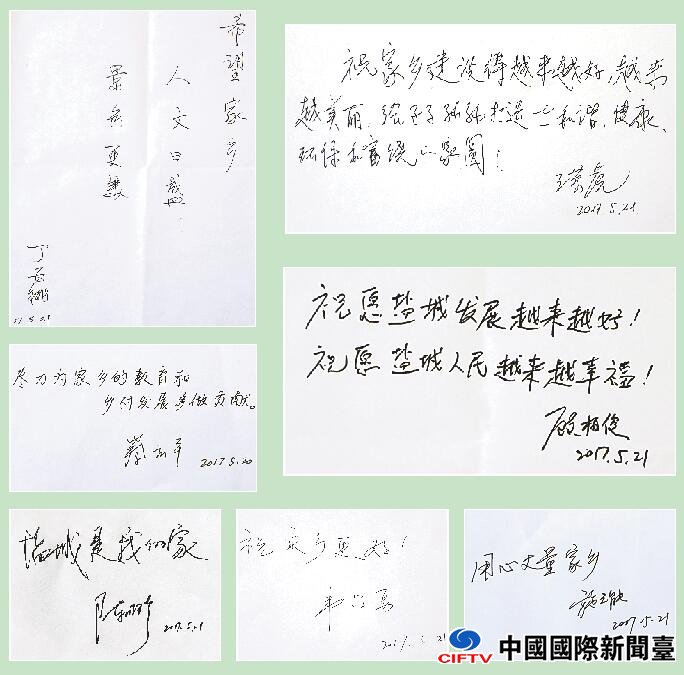 希望家乡
人文日盛
景色更
祝家乡建设得越来越好,越来
越美丽,给子子孙孙打造一个和谐、健康、
环保和富饶的家园!
2017.5.21
祝愿盐城发展越来越好!
祝愿盐城人民越来越幸福!
2017.5.21
尽力为家乡的教育和
乡村发展多做贡献。
2017.5.20
盐城是我们家
2017.5.21
祝家乡更好!
用心丈量家乡
2017.5.21
CIFTV 中國國際新聞臺